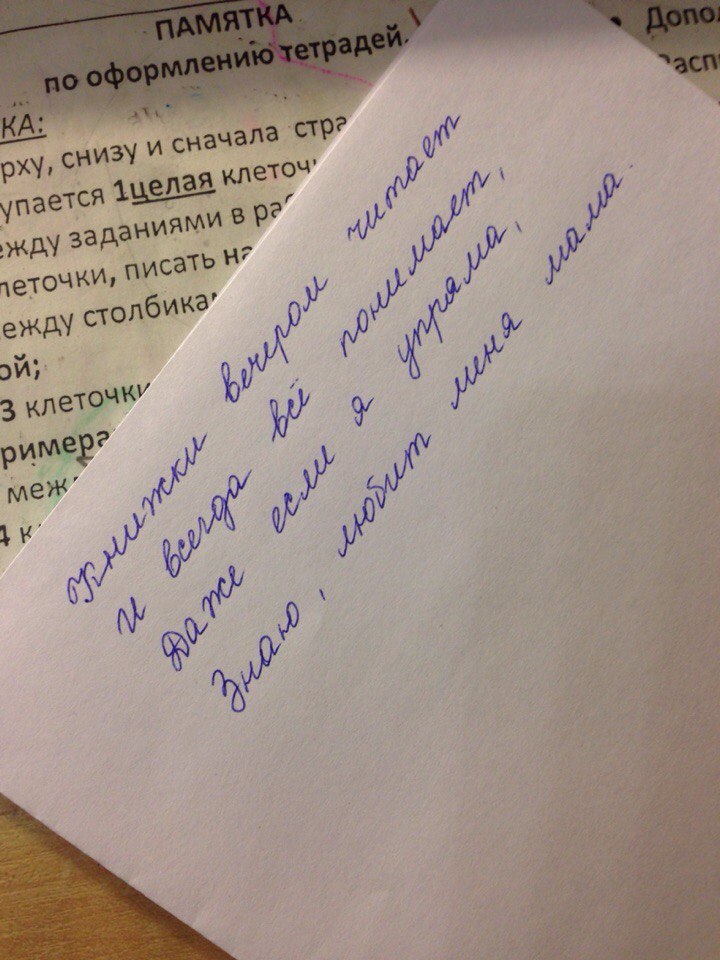 ПАМЯТКА
по оформлению тетрадей.
КА:
рху, снизу и сначала стра
упается 1целая клеточ
ежду заданиями в ра
леточки, писать на
ежду столбика
ой;
3 клеточки
римера
меж
4 к
Допо
Расп
Книжки вечером читает
И всегда всё понимает,
Даже если я упряма,
Знаю, любит меня мама.